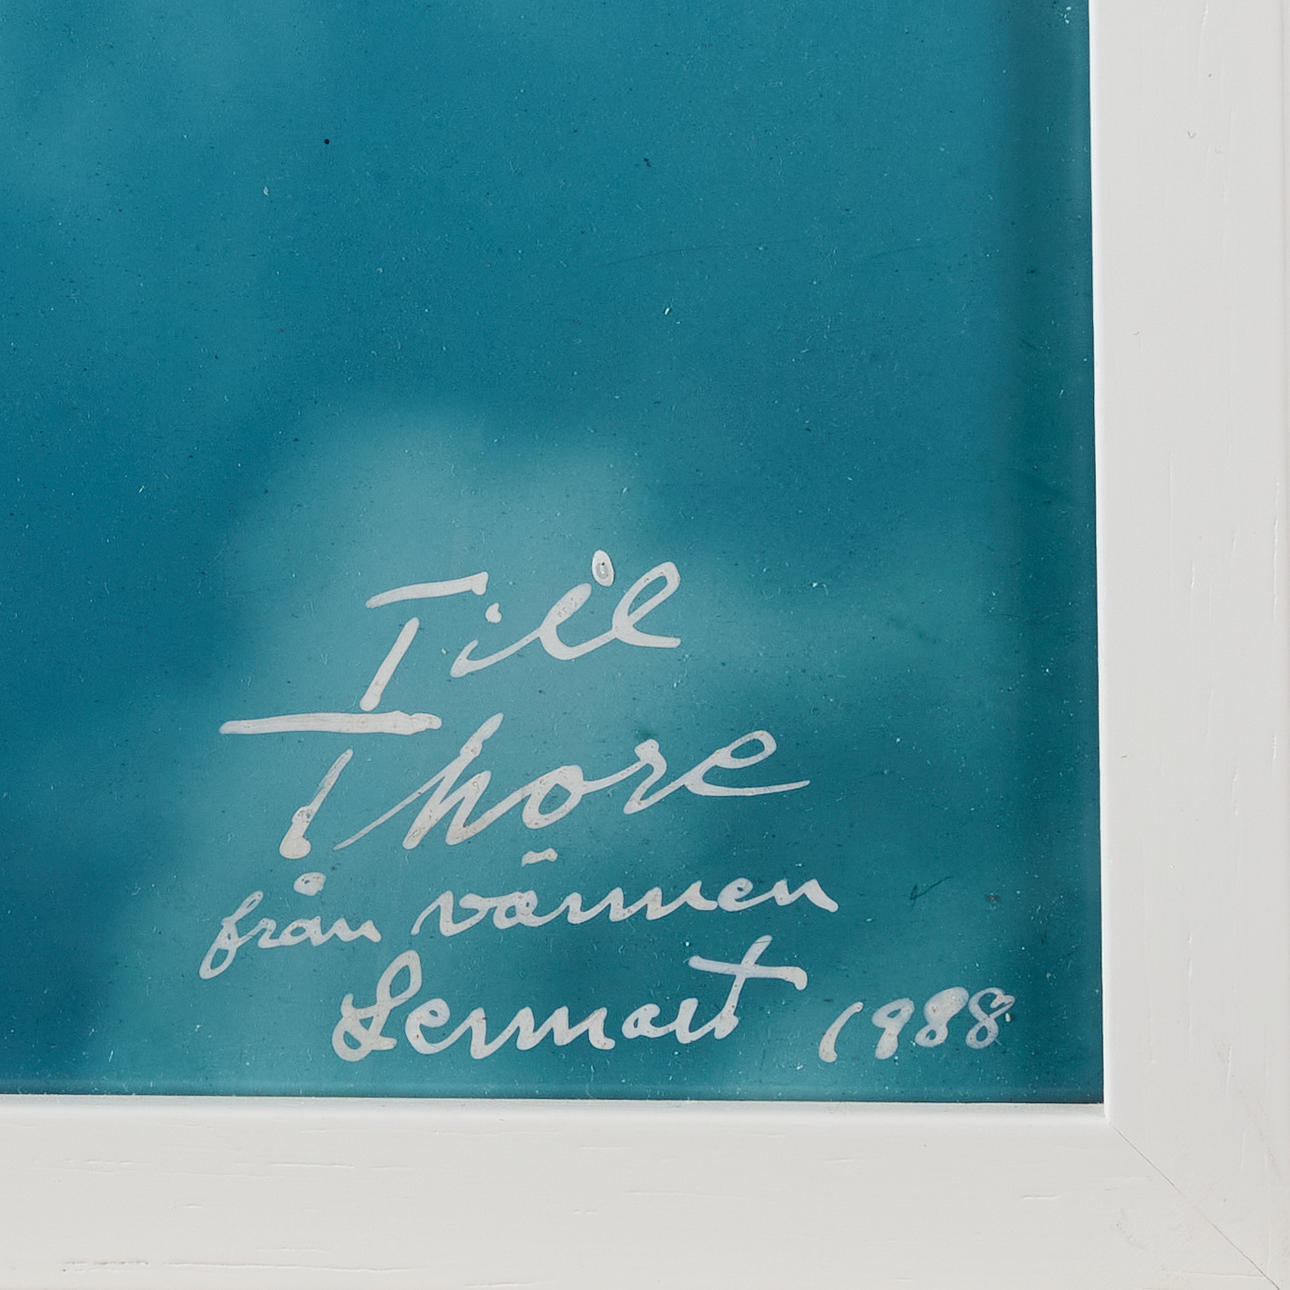 Till
Thore
från vännen
Lennart 1988